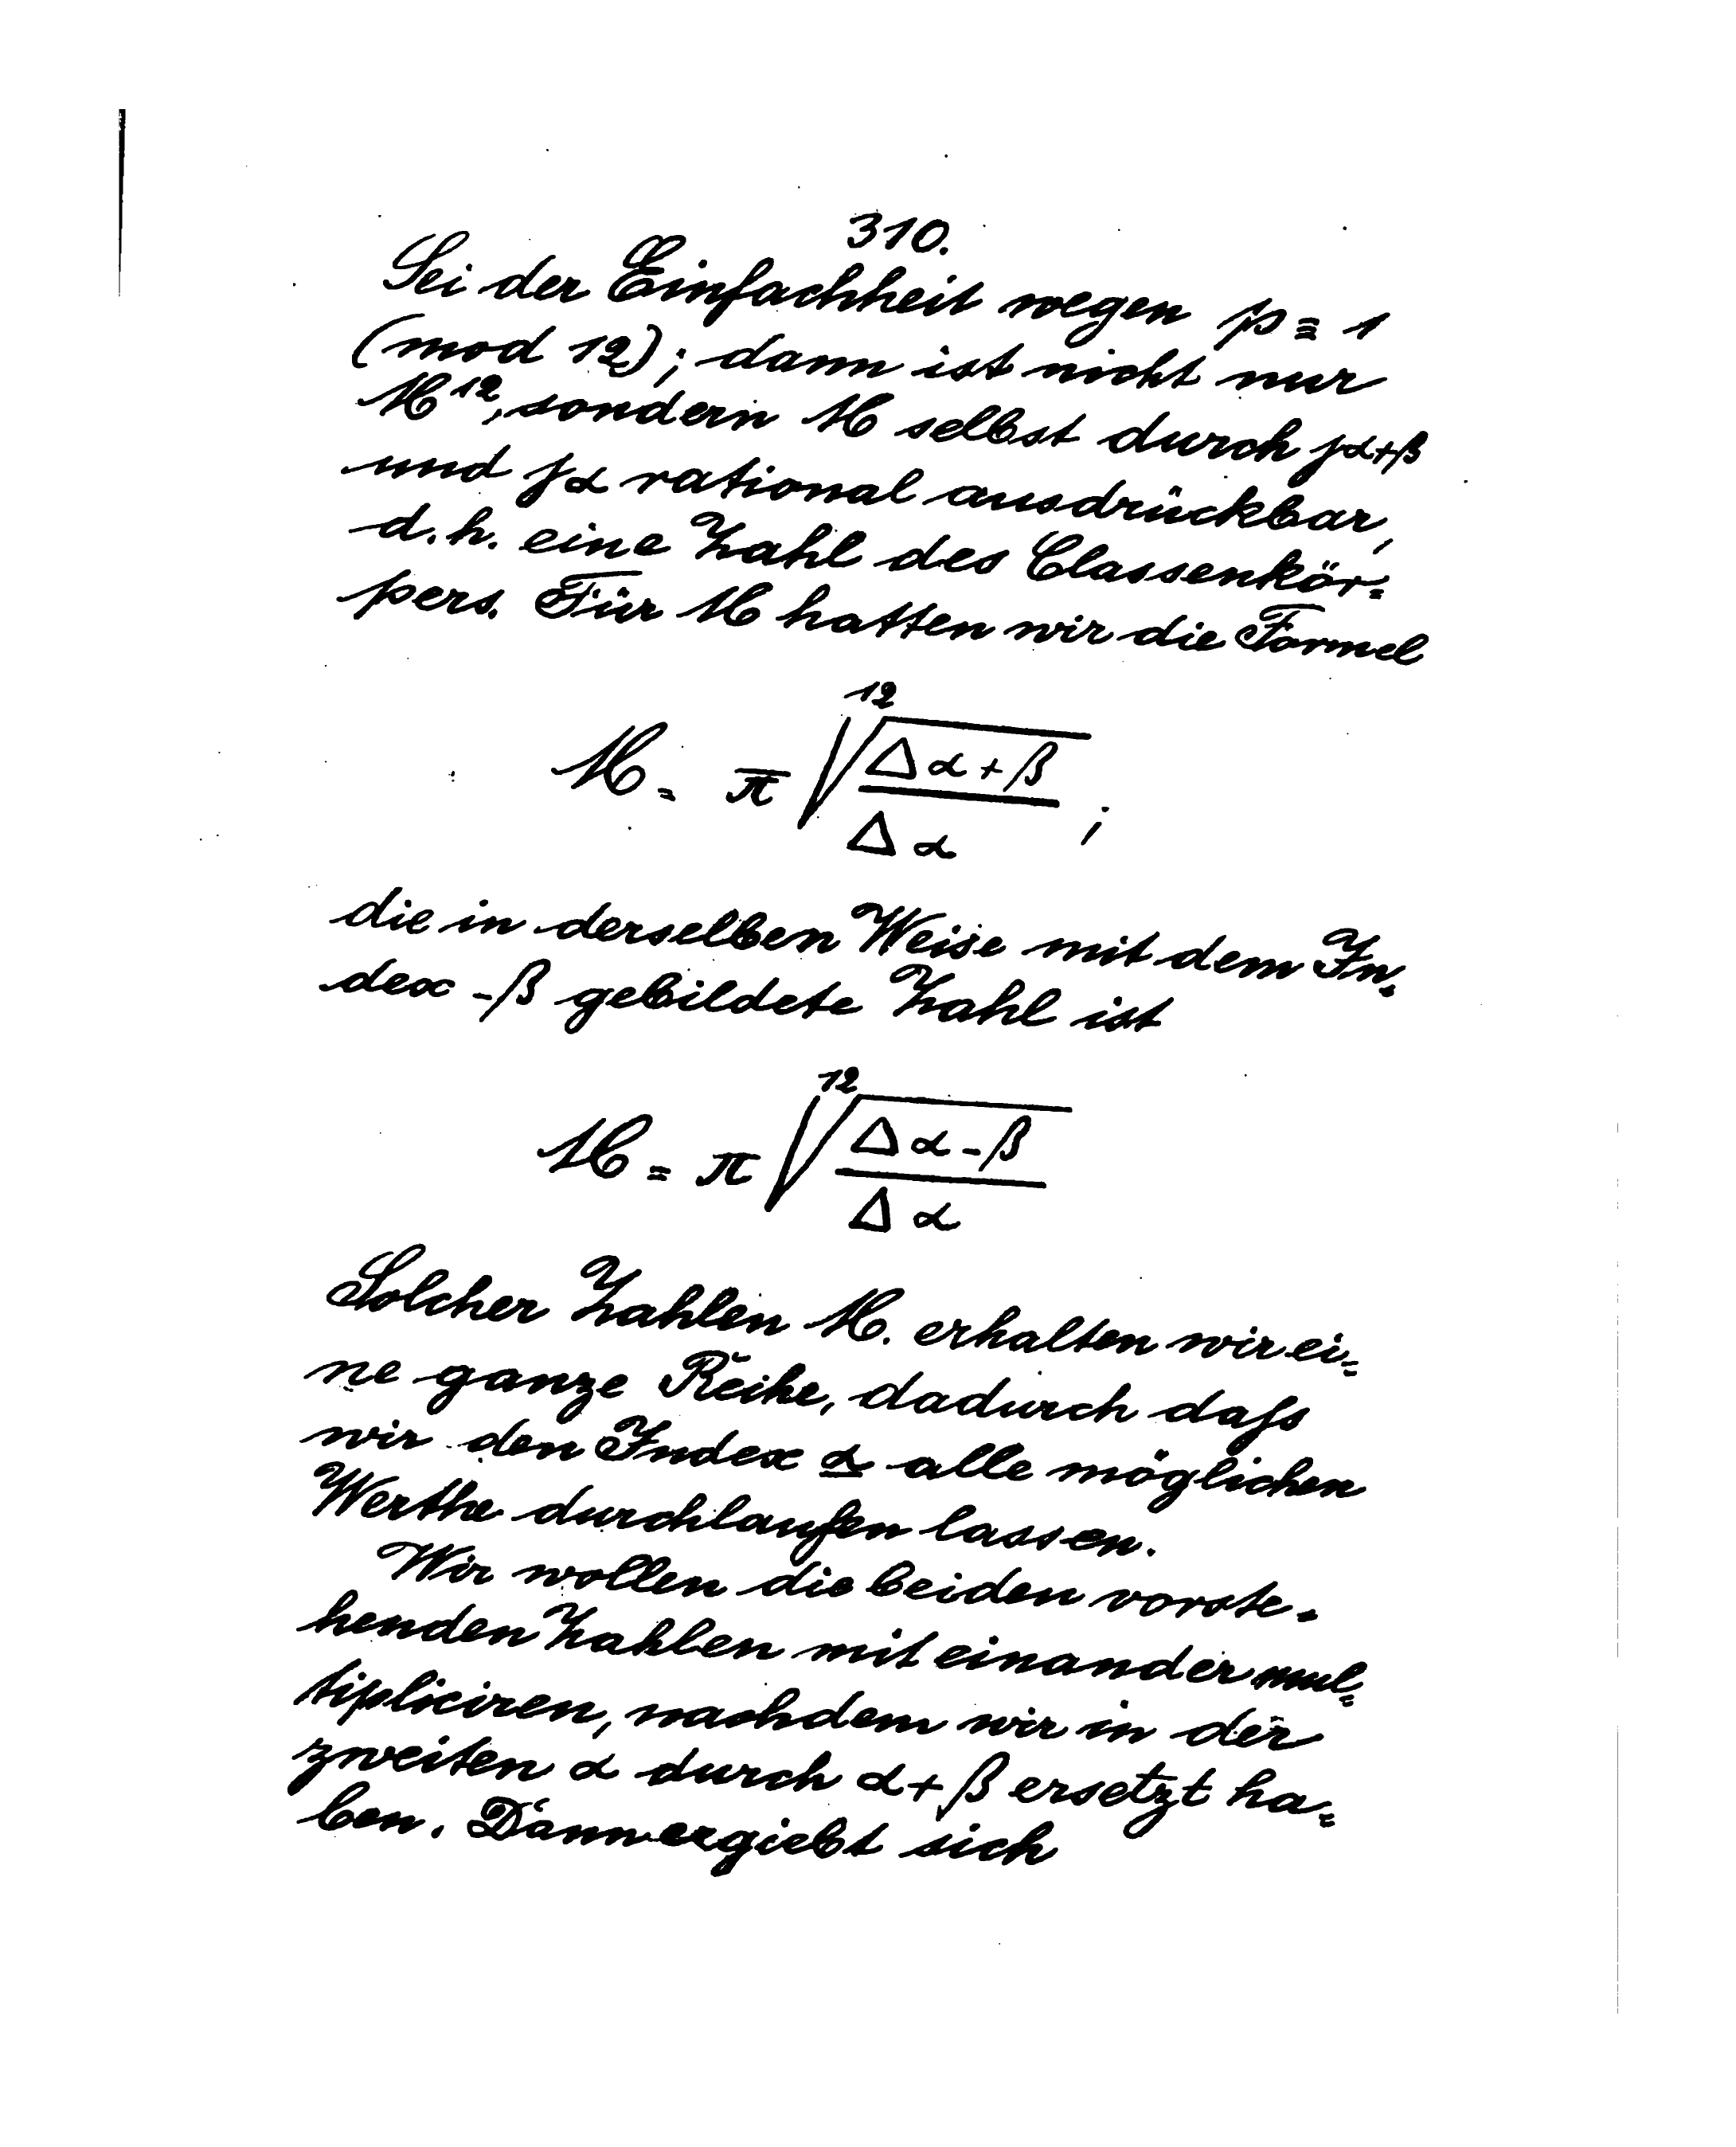 310.
Sei der Einfachheit wegen p ≡ 1
(mod 12); dann ist nicht nur
M¹², sondern M selbst durch jα+β
und jα rational ausdrückbar,
d. h. eine Zahl des Classenkör=
pers. Für M hatten wir die Formel
M = π̅ ¹²√(Δα+β / Δα) ;
die in derselben Weise mit dem In=
dex -β gebildete Zahl ist
M = π ¹²√(Δα-β / Δα)
Solcher Zahlen M. erhalten wir ei=
ne ganze Reihe, dadurch daſs
wir den Index α alle möglichen
Werthe durchlaufen lassen.
Wir wollen die beiden vorste=
henden Zahlen mit einander mul=
tipliciren, nachdem wir in der
zweiten α durch α+β ersetzt ha=
ben. Dann ergiebt sich